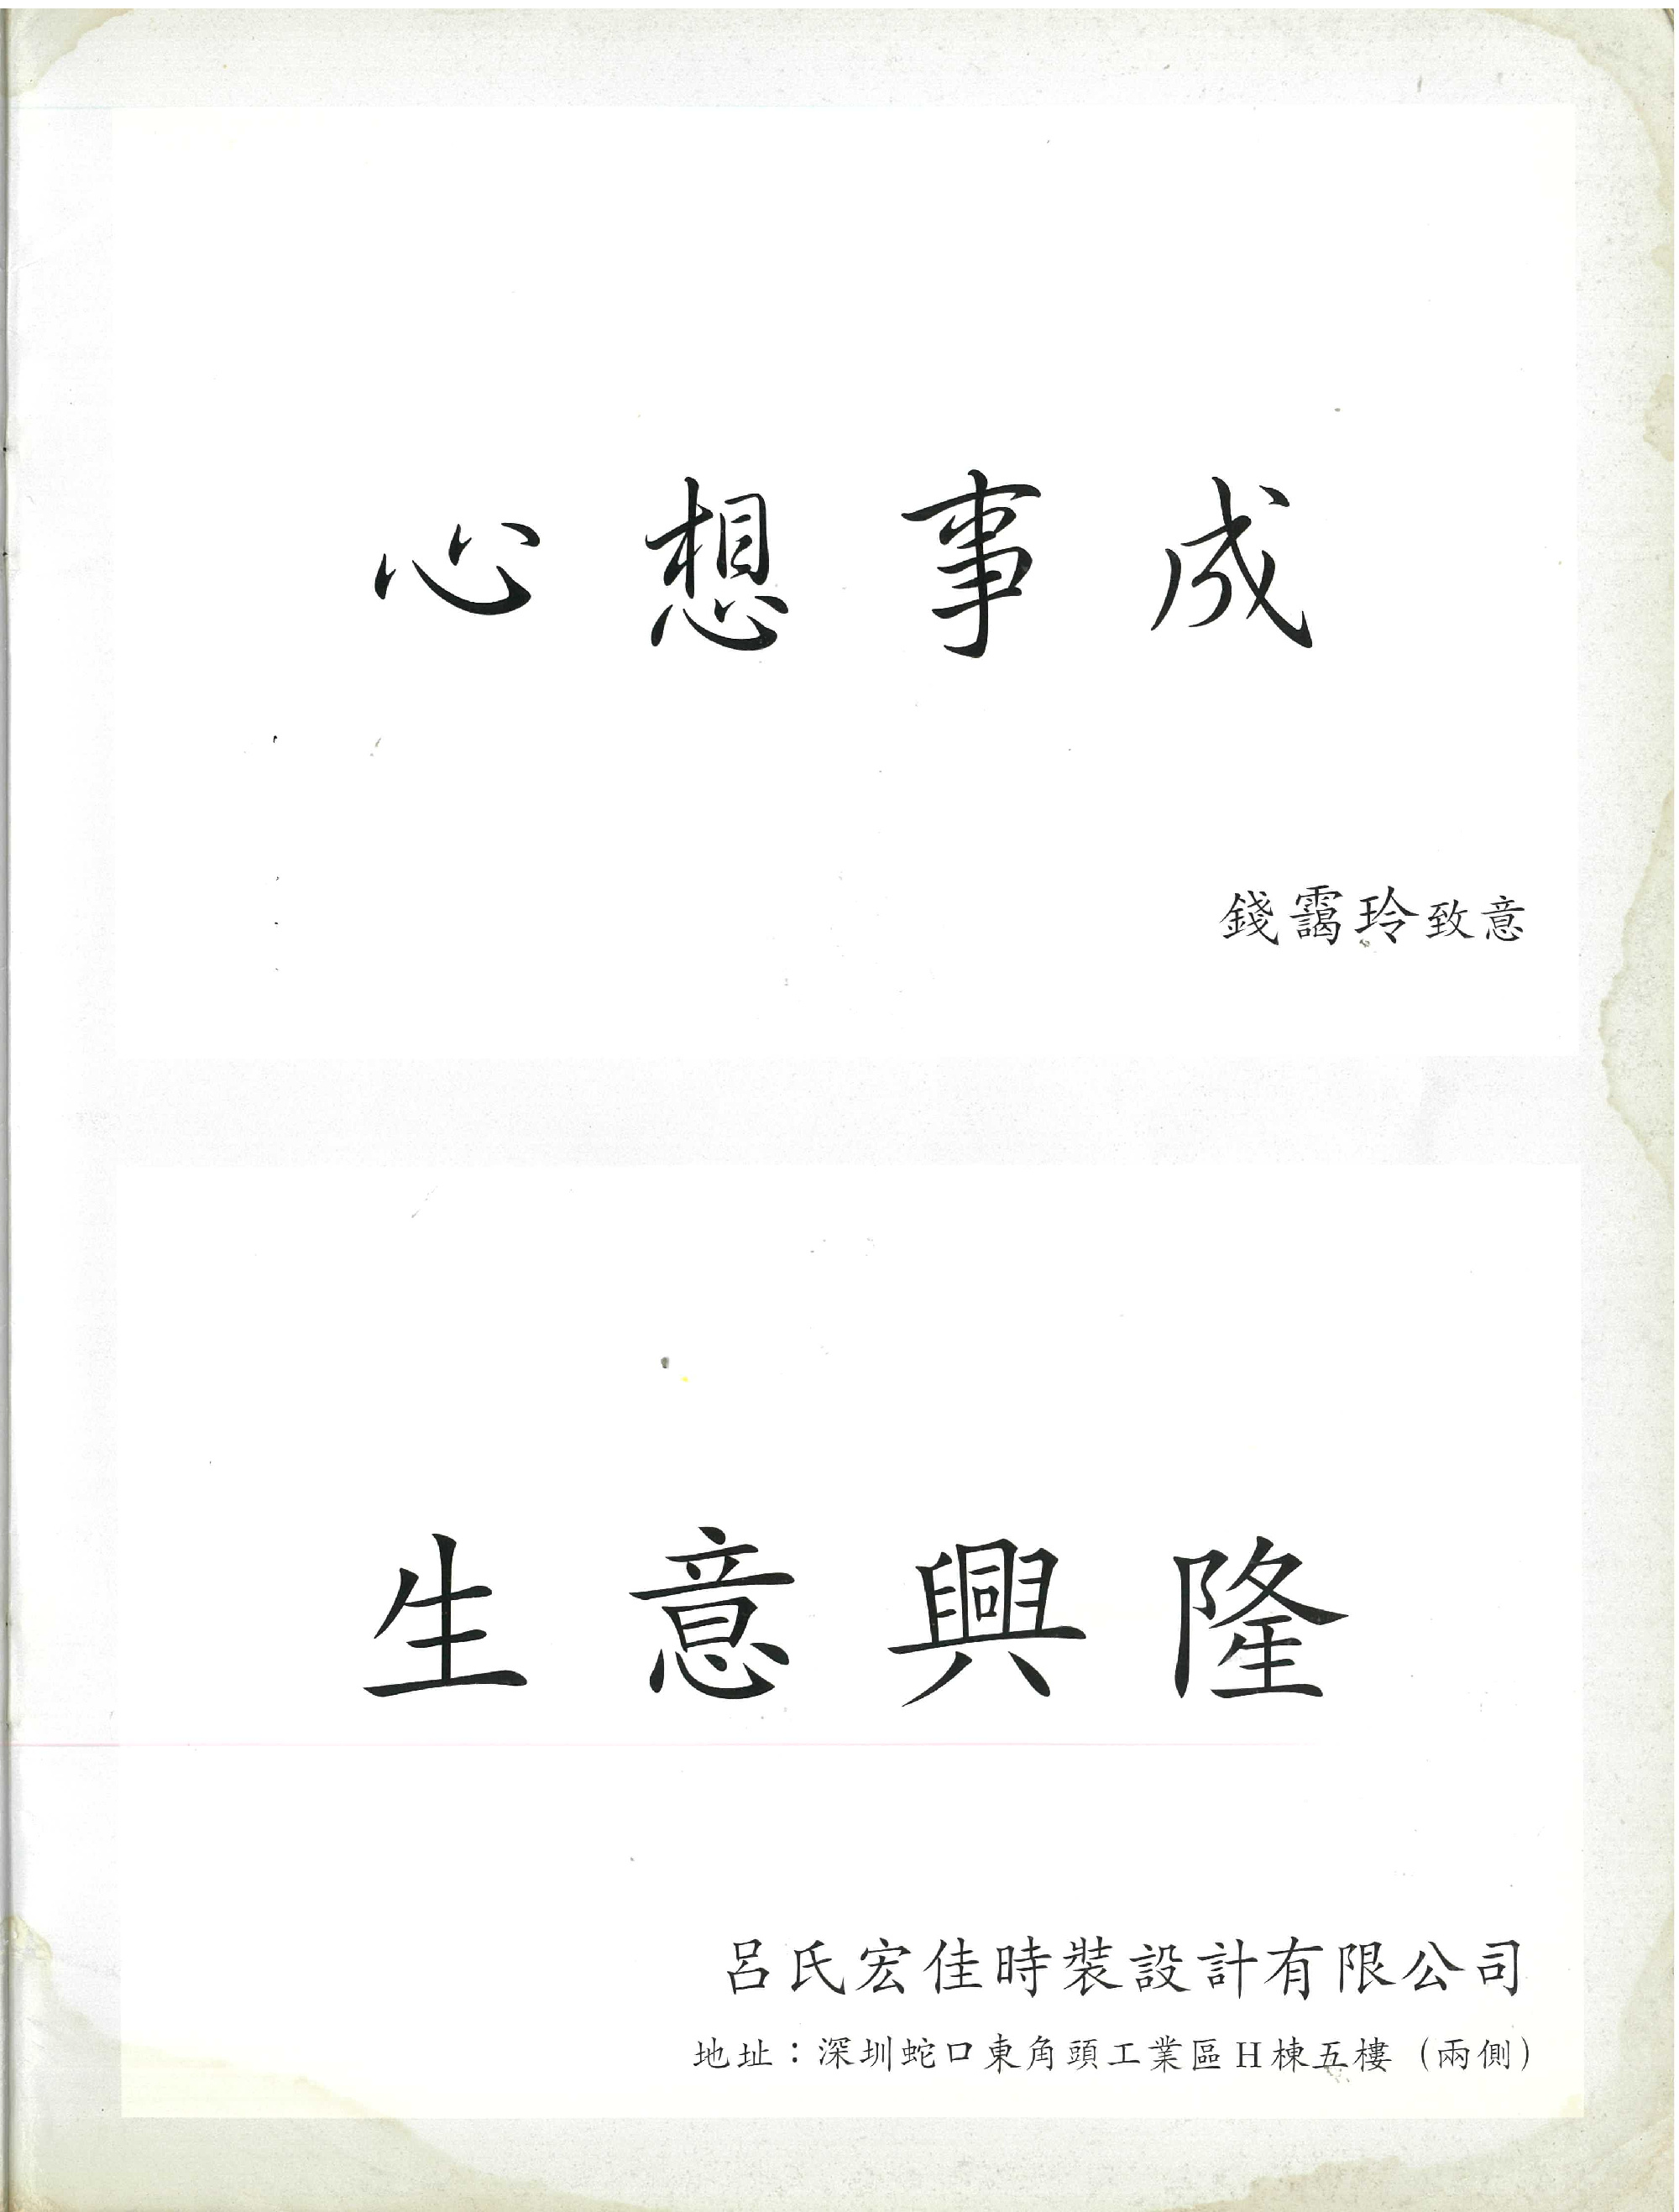 心想事成
錢靄玲致意
生意興隆
呂氏宏佳時裝設計有限公司
地址：深圳蛇口東角頭工業區H棟五樓（兩側）